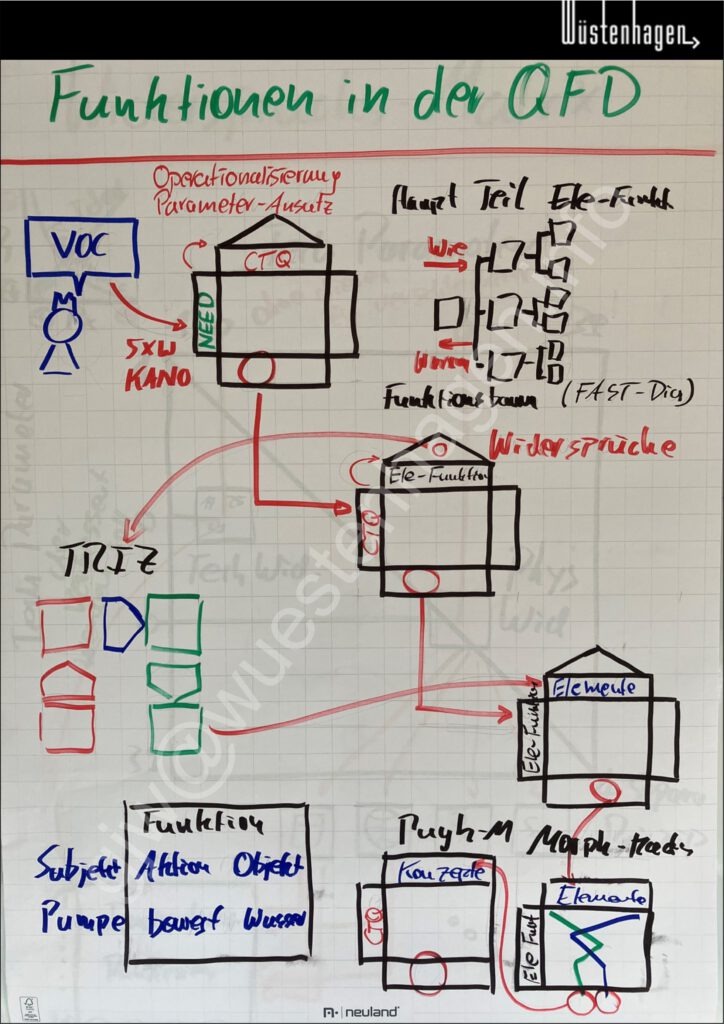 Wüstenhagen
Funktionen in der QFD
Operationalisierung
Parameter-Ansatz
VOC
NEED
CTQ
5xW
KANO
Haupt Teil Ele-Funkt
Wie
Warum
Funktionsbaum (FAST-Dia)
Widersprüche
Ele-Funktion
CTQ
TRIZ
Elemente
Ele-Funktion
Funktion
Subjekt Aktion Objekt
Pumpe bewegt Wasser
Pugh-M
Konzepte
CTQ
Elemente
Ele Funkt
neuland